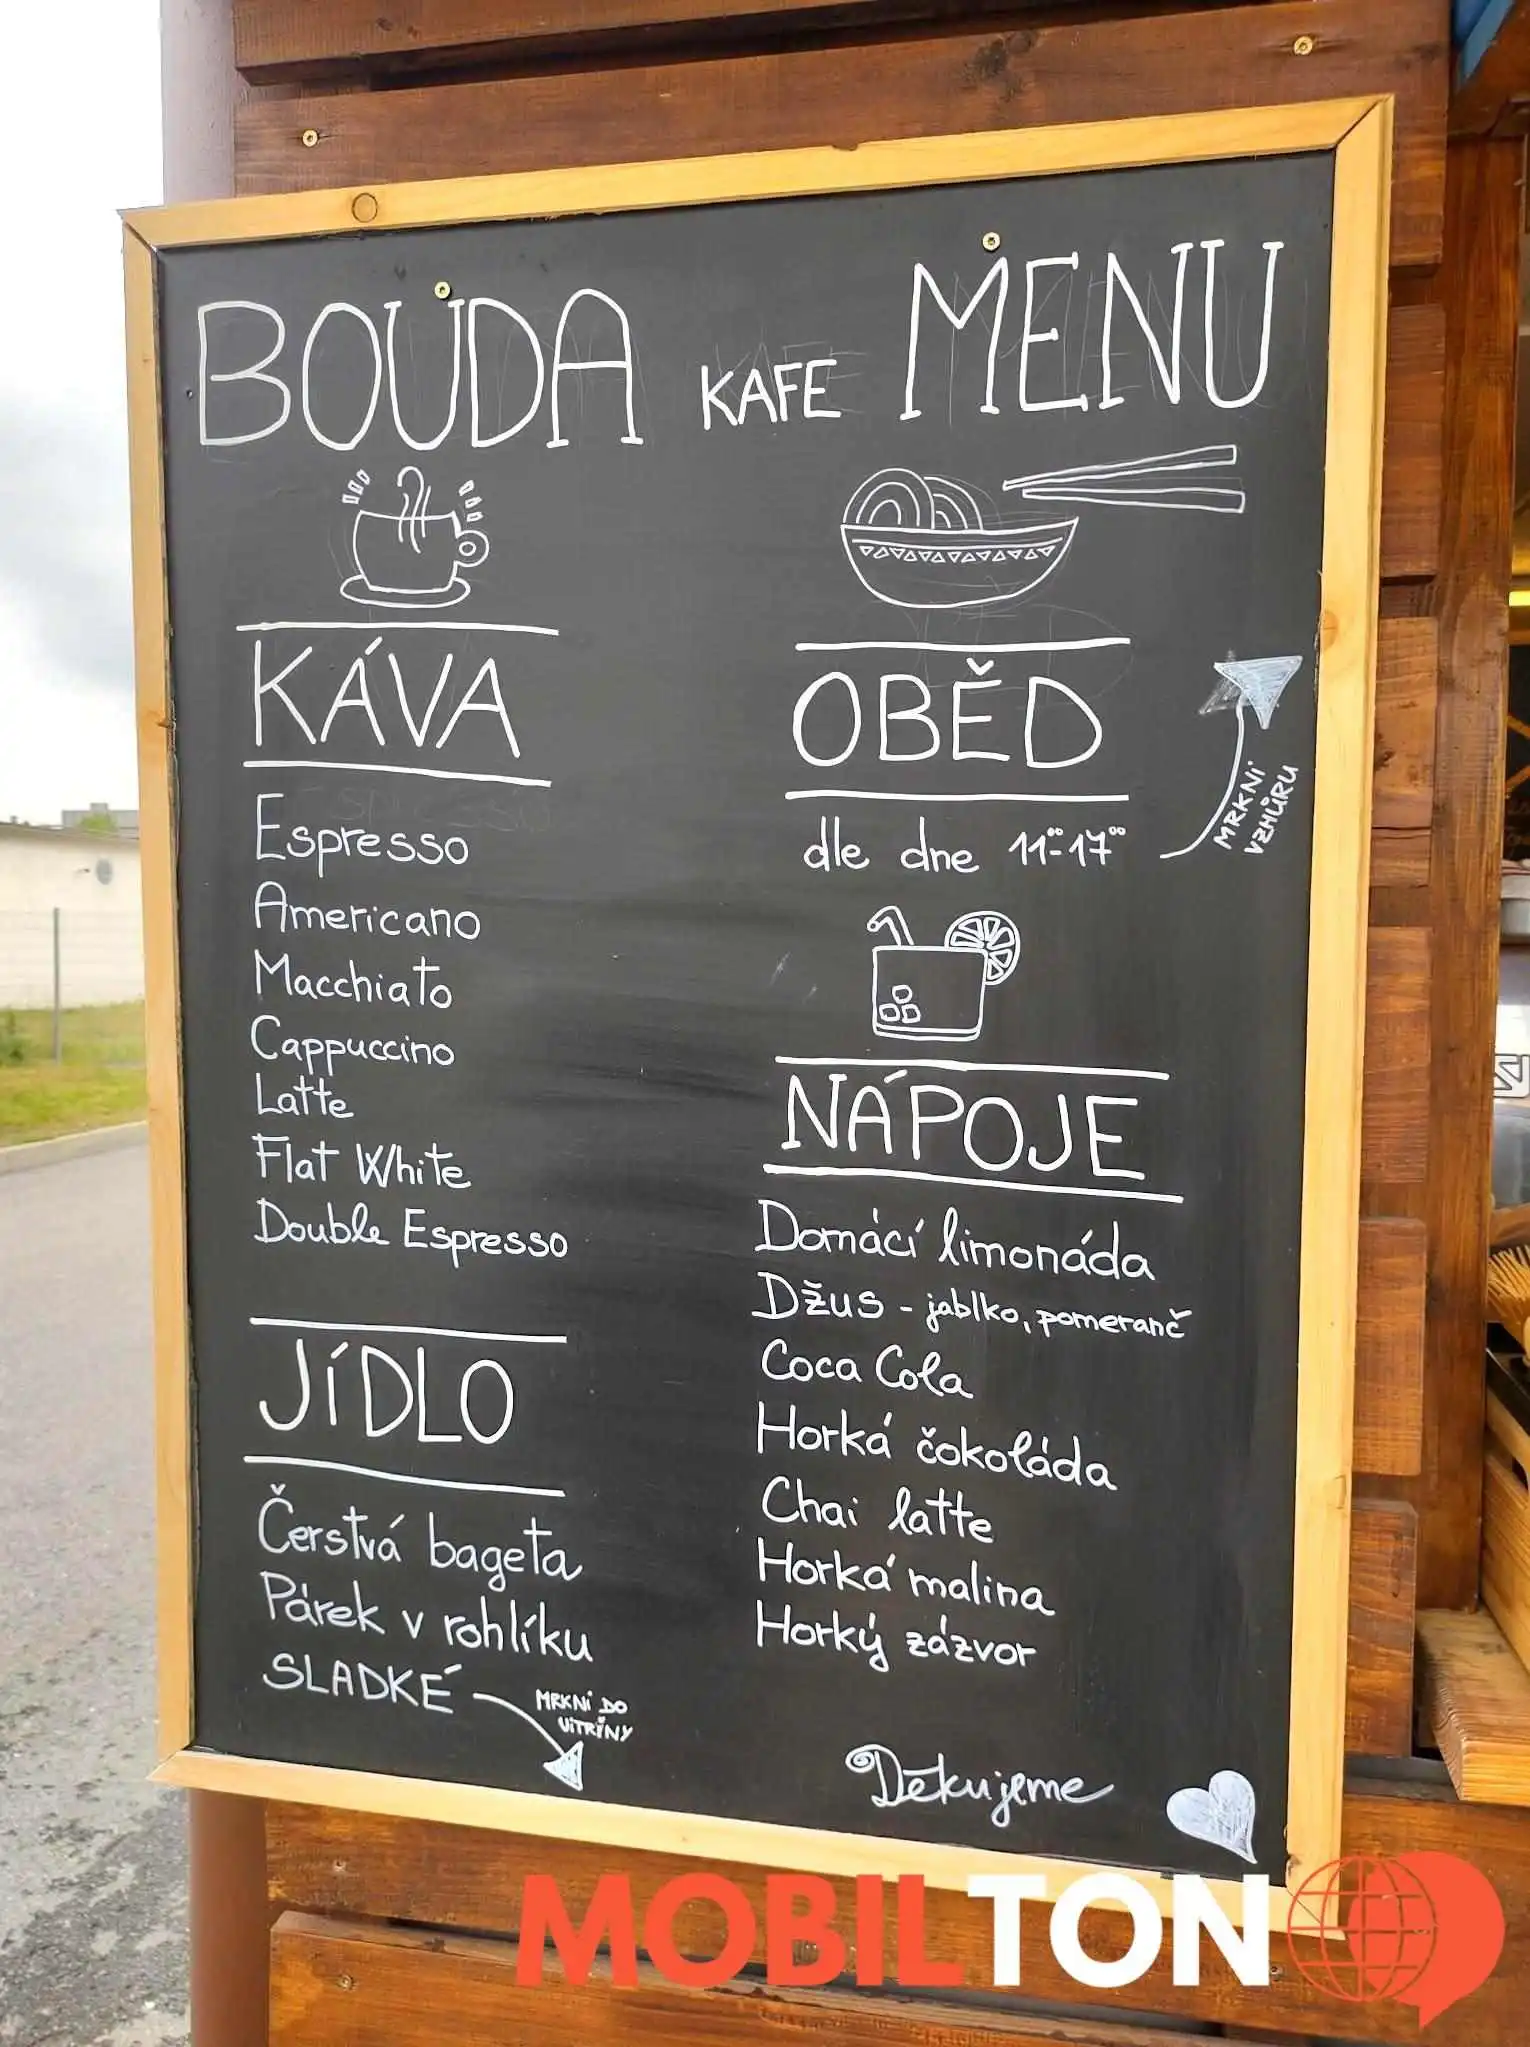 BOUDA KAFE MENU
KÁVA
Espresso
Americano
Macchiato
Cappuccino
Latte
Flat White
Double Espresso
JÍDLO
Čerstvá bageta
Párek v rohlíku
SLADKÉ
MRKNI DO
VITRÍNY
OBĚD
dle dne 11⁰⁰-17⁰⁰
MRKNI
VZHŮRU
NÁPOJE
Domácí limonáda
Džus - jablko, pomeranč
Coca Cola
Horká čokoláda
Chai latte
Horká malina
Horký zázvor
Děkujeme
MOBILTON